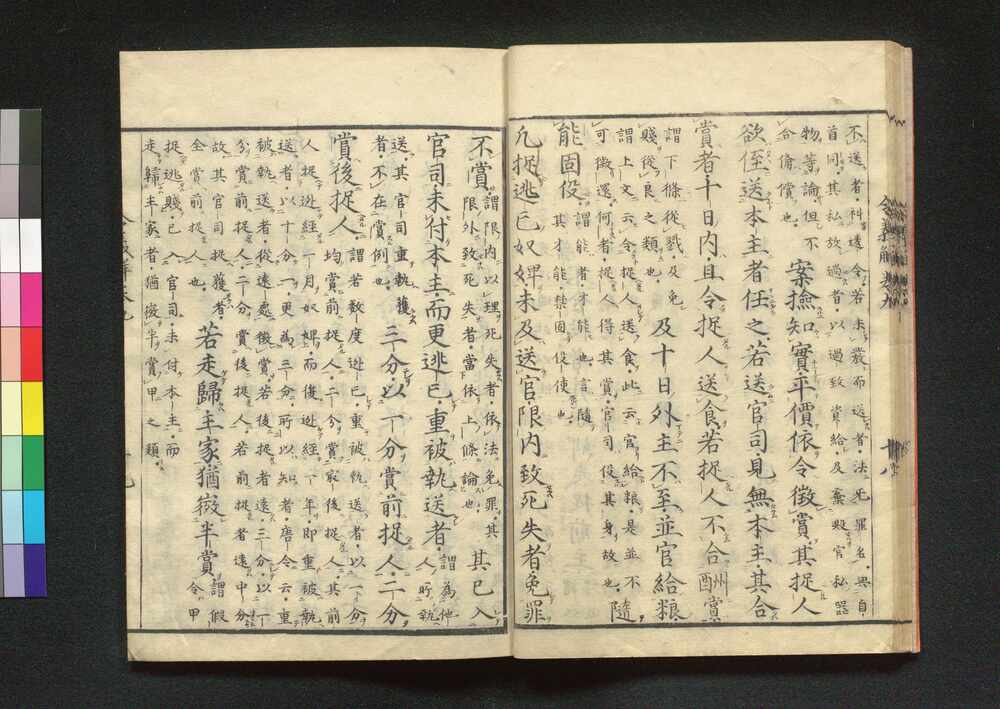 不送者科違令若未裁而送者法無罪名與自
首同其私放過者以過致賞給及棄毀官私器
物等論但不
合備償也
案撿知實平價依令徴賞其捉人
欲侄送本主者任之若送官司見無本主其合
賞者十日內且令捉人送食若捉人不合酬賞
謂下條從戮及免
賤從良之類也
及十日外主不至並官給粮
謂上文云令捉人送食此云官給粮是並不
可徴還何者捉人得其賞官司役其身故也
隨
能固役
謂能者才能也言隨
其才能禁固役使也
凡捉逃亡奴婢未及送官限內致死失者免罪
不賞
謂限內以理死失者依法免罪其
限外致死失者當依上條論也
其已入
官司未付本主而更逃亡重被執送者
謂為他
人所執
送其官司重執獲
者不在賞例也
三分以一分賞前捉人二分
賞後捉人
謂若數度逃亡重被執送者以一分
均賞前捉人二分賞最後捉人其前
人捉逃經一月奴婢而後逃經一年即重被執
送者以十分一更為三分所以知者唐令云重
被執送者從遠處徴賞若後捉者遠三分以一
分賞前捉人二分賞後捉人若前捉者遠中分
故其官司捉獲者
全賞前人也
若走歸主家猶徴半賞
謂假
令甲
捉逃賤已入官司未付本主而
走歸本家者猶徴半賞甲之類